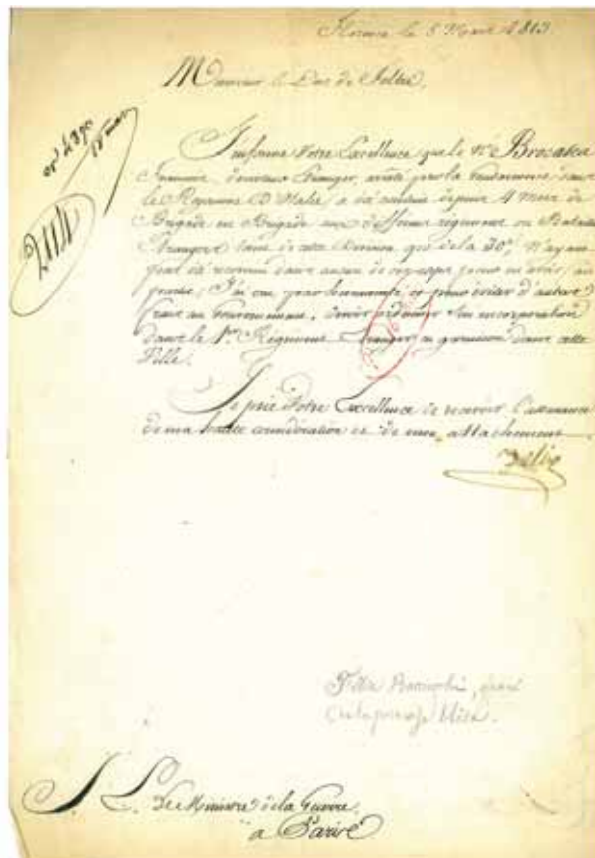 Florence le 5 Mars 1813.
Monsieur le Duc de Feltre,
J'informe Votre Excellence que le Né Brocatea
arrêté par la Gendarmerie dans
le Royaume D'Italie a été conduit depuis 4 Mois de
Brigade en Brigade aux différens régimens ou Bataillons
Etrangers tant de cette Division que de la 30e. N'ayant
pas été reconnu dans aucun de ces corps pour en avoir fait
partie, J'ai cru, par humanité et pour éviter d'autres
frais au Gouvernement, devoir ordonner son incorporation
dans le 1er Régiment Etranger en garnison dans cette
Ville.
Je prie Votre Excellence de recevoir l'assurance
de ma haute considération et de mon attachement
Félix
Félix
de la princesse Elisa.
S. E. Le Ministre de la Guerre.
à Paris